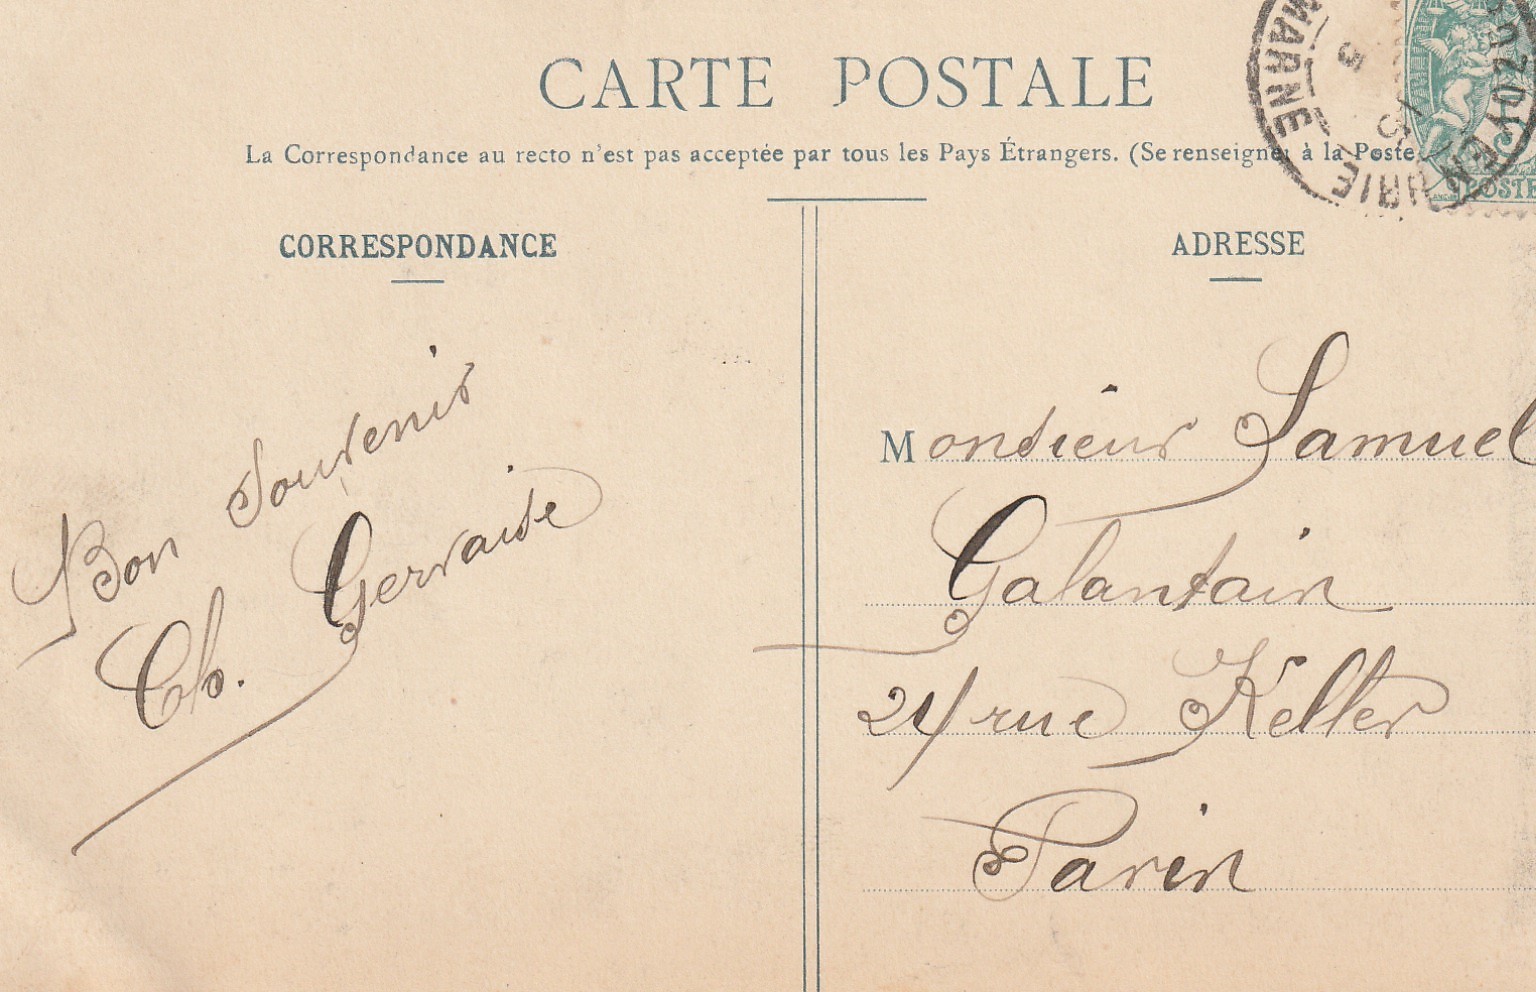 CARTE POSTALE
La Correspondance au recto n'est pas acceptée par tous les Pays Étrangers. (Se renseigner à la Poste
CORRESPONDANCE
Bon Souvenir
Ch. Gervaise
ADRESSE
Monsieur Samuel
Galantair
21 rue Keller
Paris
MARNE
EN BRIE
POSTE